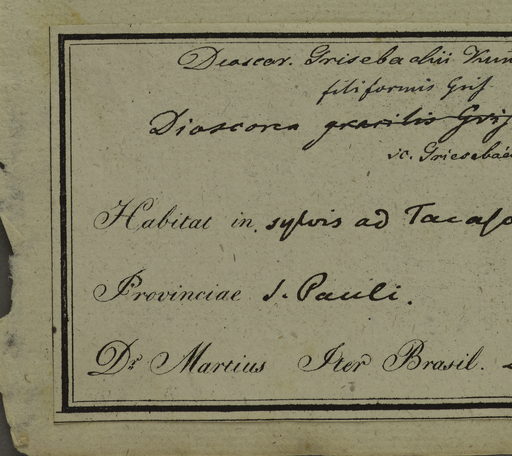 Dioscor. Grisebachii Kun
filiformis Gris
Dioscorea gracilis Gris
ic. Griesebac
Habitat in sylvis ad Tacasa
Provinciae S. Pauli.
Dr. Martius Iter Brasil.